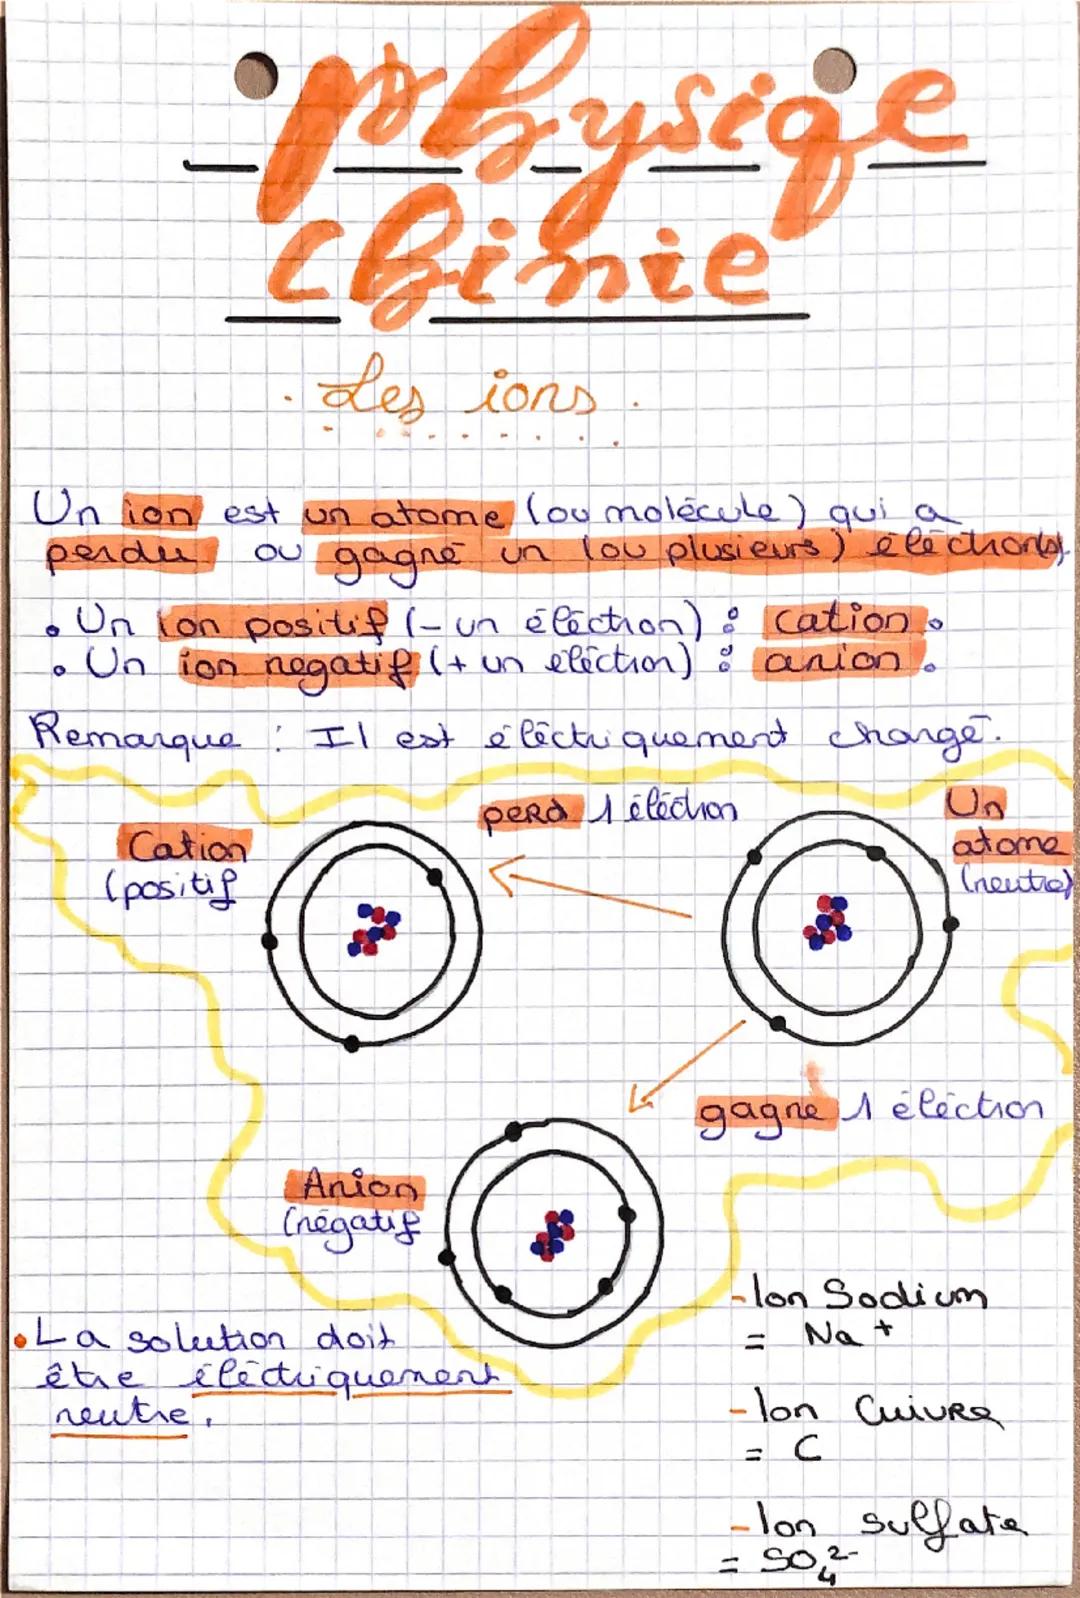 physiqe
chimie
. Les ions .
Un ion est un atome (ou molécule) qui a
perdu ou gagné un (ou plusieurs) éléctron(s).
• Un ion positif (- un éléction) : cation.
• Un ion negatif (+ un éléction) : anion.
Remarque : Il est éléctriquement chargé.
perd 1 éléction
Un
atome
(neutre)
Cation
(positif
gagne 1 éléction
Anion
(négatif
• La solution doit
être éléctriquement
neutre.
- Ion Sodium
= Na +
- Ion Cuivre
= C
- Ion sulfate
= SO₄²⁻